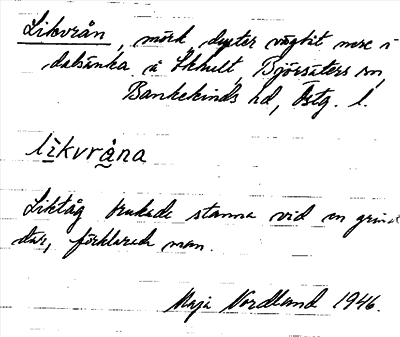 Likvrån, mörk, dyster vägbit nere i
dalsänka i Ekhult, Björsäters sn,
Bankekinds hd, Östg. l.
likvråna
Liktåg brukade stanna vid en grind
där, förklarade man.
Maja Nordland 1946.